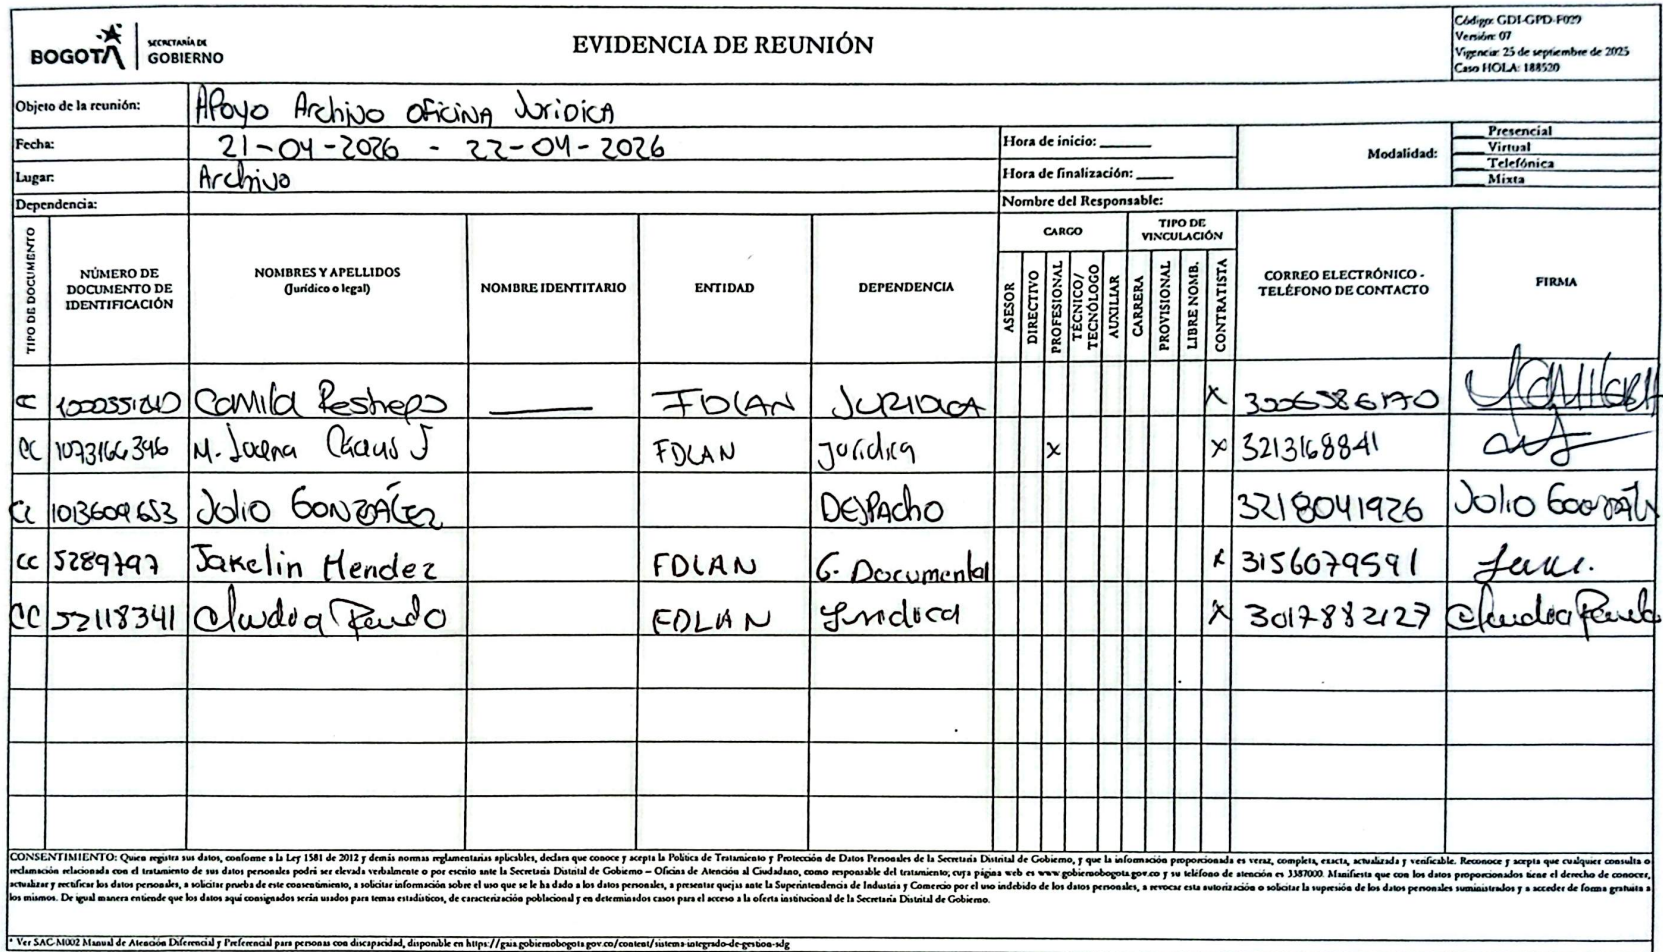 BOGOTÁ
SECRETARÍA DE
GOBIERNO
EVIDENCIA DE REUNIÓN
Código: GDI-GPD-F029
Versión: 07
Vigencia: 25 de septiembre de 2025
Caso HOLA: 188520
Objeto de la reunión: Apoyo Archivo Oficina Juridica
Fecha: 21-04-2026 - 22-04-2026
Hora de inicio: ______
Hora de finalización: ____
Modalidad:
____Presencial
____Virtual
____Telefónica
____Mixta
Lugar: Archivo
Dependencia:
Nombre del Responsable:
TIPO DE DOCUMENTO
NÚMERO DE DOCUMENTO DE IDENTIFICACIÓN
NOMBRES Y APELLIDOS
(Jurídico o legal)
NOMBRE IDENTITARIO
ENTIDAD
DEPENDENCIA
CARGO
ASESOR
DIRECTIVO
PROFESIONAL
TÉCNICO/ TECNÓLOGO
AUXILIAR
TIPO DE VINCULACIÓN
CARRERA
PROVISIONAL
LIBRE NOMB.
CONTRATISTA
CORREO ELECTRÓNICO - TELÉFONO DE CONTACTO
FIRMA
CC Camila Restrepo FDLAN JURIDICA X
CC 1073164396 M. FDLAN Jurídica X X 3213168841
CC 1013609653 Julio GONZÁLEZ DESPACHO 3218041926 Julio González
CC 5289797 Jakelin Mendez FDLAN G. Documental X 3156079591
CC 52118341 Claudia Pardo FDLAN Juridica X 3017882127 Claudia Pardo
CONSENTIMIENTO: Quien registra sus datos, conforme a la Ley 1581 de 2012 y demás normas reglamentarias aplicables, declara que conoce y acepta la Política de Tratamiento y Protección de Datos Personales de la Secretaría Distrital de Gobierno, y que la información proporcionada es veraz, completa, exacta, actualizada y verificable. Reconoce y acepta que cualquier consulta o
reclamación relacionada con el tratamiento de sus datos personales podrá ser elevada verbalmente o por escrito ante la Secretaría Distrital de Gobierno – Oficina de Atención al Ciudadano, como responsable del tratamiento; cuya página web es www.gobiernobogota.gov.co y su teléfono de atención es 3387000. Manifiesta que con los datos proporcionados tiene el derecho de conocer,
actualizar y rectificar los datos personales, a solicitar prueba de este consentimiento, a solicitar información sobre el uso que se le ha dado a los datos personales, a presentar quejas ante la Superintendencia de Industria y Comercio por el uso indebido de los datos personales, a revocar esta autorización o solicitar la supresión de los datos personales suministrados y a acceder de forma gratuita a
los mismos. De igual manera entiende que los datos aquí consignados serán usados para temas estadísticos, de caracterización poblacional y en determinados casos para el acceso a la oferta institucional de la Secretaría Distrital de Gobierno.
* Ver SAC-M002 Manual de Atención Diferencial y Preferencial para personas con discapacidad, disponible en https://gaia.gobiernobogota.gov.co/content/sistema-integrado-de-gestion-sdg